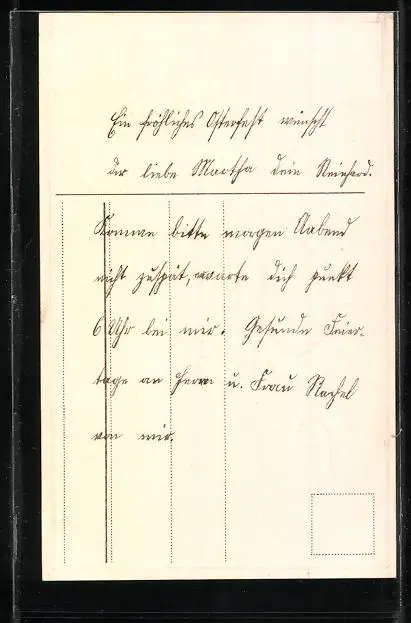 Ein fröhliches Osterfest wünscht
der liebe Martha dein Reinhard.
Komme bitte morgen Aabend
nicht zuspät, warte dich punkt
6 Uhr bei mir. Gesunde Feier-
tage an Herrn u. Frau Rachel
von mir.